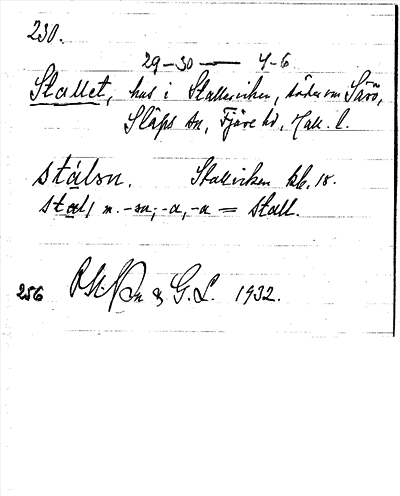 230.
29-30 — 4-6
Stallet, hus i Stallviken, söder om Särö,
Släps sn, Fjäre hd, Hall. l.
stálsn. Stallviken kb. 18.
stál, m. -sn; -a, -a = stall.
256 & G. L. 1932.